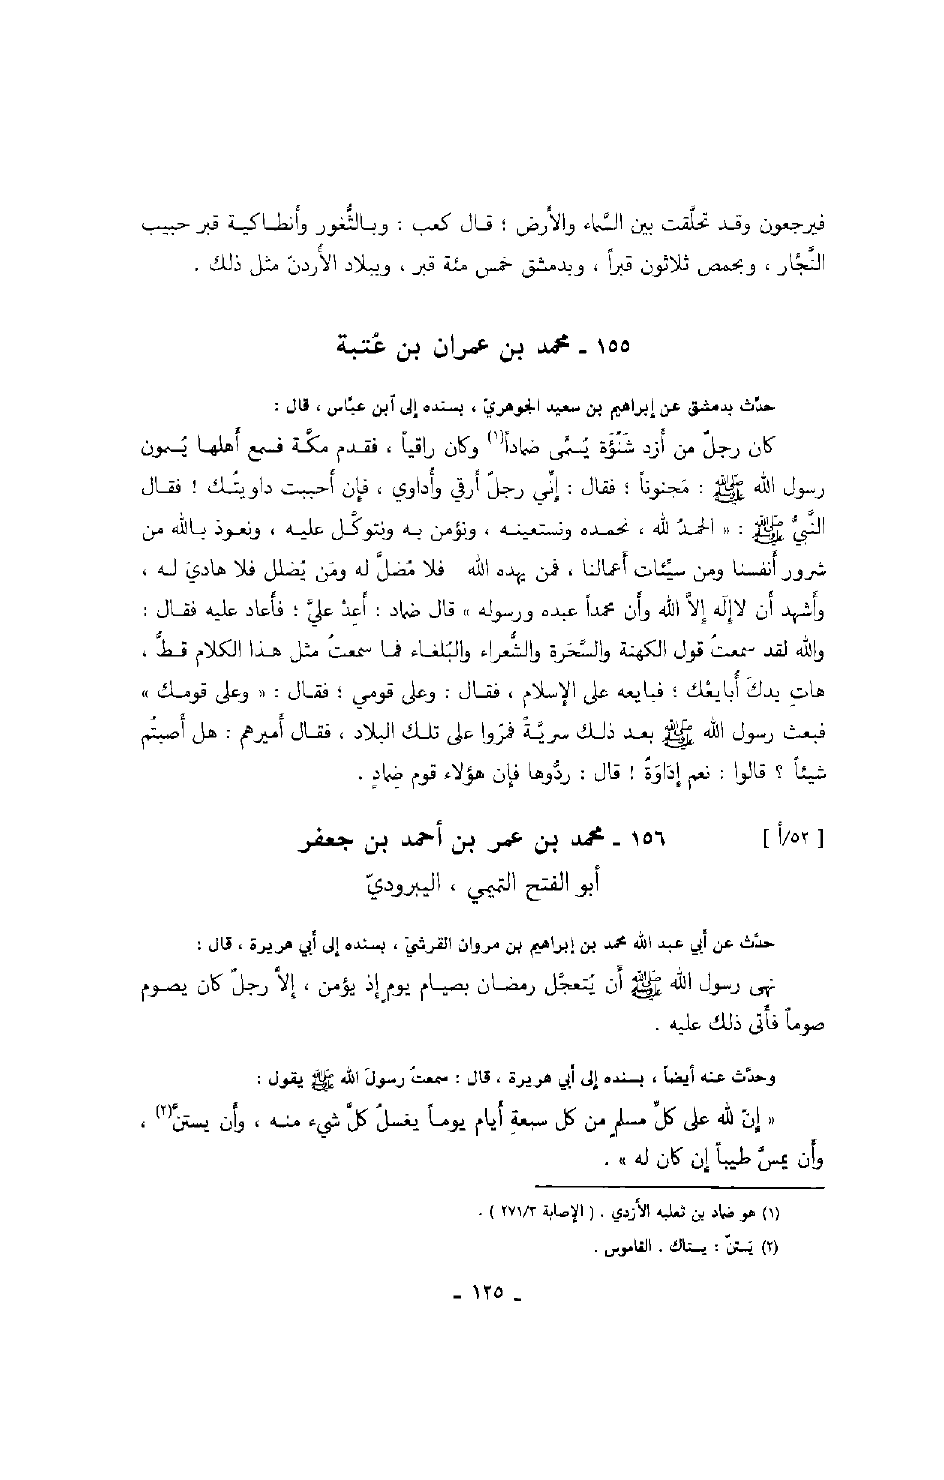 فيرجعون وقد تحلَّقت بين السَّماء والأرض ؛ قال كعب : وبالثُّغور وأنطاكية قبر حبيب
النَّجَّار ، وبحمص ثلاثون قبراً ، وبدمشق خمس مئة قبر ، وببلاد الأردنّ مثل ذلك .
١٥٥ ـ محمد بن عمران بن عُتبة
حدَّث بدمشق عن إبراهيم بن سعيد الجوهريّ ، بسنده إلى ٱبن عبَّاس ، قال :
كان رجلٌ من أزد شَنُؤَة يُسَمَّى ضماداً(١) وكان راقياً ، فقدم مكَّة فسمع أهلها يُسمون
رسول الله ﷺ : مَجنوناً ؛ فقال : إنِّي رجلٌ أرقي وأداوي ، فإن أحببت داويتُك ! فقال
النَّبيُّ ﷺ : « الحمدُ لله ، نحمده ونستعينه ، ونؤمن به ونتوكَّل عليه ، ونعوذ بالله من
شرور أنفسنا ومن سيِّئات أعمالنا ، فمن يهده الله فلا مُضلَّ له ومَن يُضلل فلا هاديَ له ،
وأشهد أن لاإله إلاَّ الله وأن محمداً عبده ورسوله » قال ضماد : أعِدْ عليَّ ؛ فأعاد عليه فقال :
والله لقد سمعتُ قول الكهنة والسَّحَرة والشُّعراء والبُلغاء فما سمعتُ مثل هذا الكلام قطُّ ،
هاتِ يدكَ أُبايعْك ؛ فبايعه على الإسلام ، فقال : وعلى قومي ؛ فقال : « وعلى قومك »
فبعث رسول الله ﷺ بعد ذلك سريَّةً فمرّوا على تلك البلاد ، فقال أميرهم : هل أصبتُم
شيئاً ؟ قالوا : نعم إدَاوَةً ! قال : ردُّوها فإن هؤلاء قوم ضِمادٍ .
[ ٥٢/أ ] ١٥٦ ـ محمد بن عمر بن أحمد بن جعفر
أبو الفتح التميمي ، اليبروديّ
حدَّث عن أبي عبد الله محمد بن إبراهيم بن مروان القرشيّ ، بسنده إلى أبي هريرة ، قال :
نهى رسول الله ﷺ أن يُتعجَّل رمضان بصيام يومٍ إذ يؤمن ، إلاَّ رجلٌ كان يصوم
صوماً فأتى ذلك عليه .
وحدَّث عنه أيضاً ، بسنده إلى أبي هريرة ، قال : سمعتُ رسولَ الله ﷺ يقول :
« إنّ لله على كلِّ مسلمٍ من كل سبعةِ أيام يوماً يغسلُ كلَّ شيء منه ، وأن يستنَّ(٢) ،
وأن يمسَّ طيباً إن كان له » .
(١) هو ضماد بن ثعلبه الأزدي . ( الإصابة ٢٧١/٣ ) .
(٢) يَستنّ : يستاك . القاموس .
ـ ١٢٥ ـ